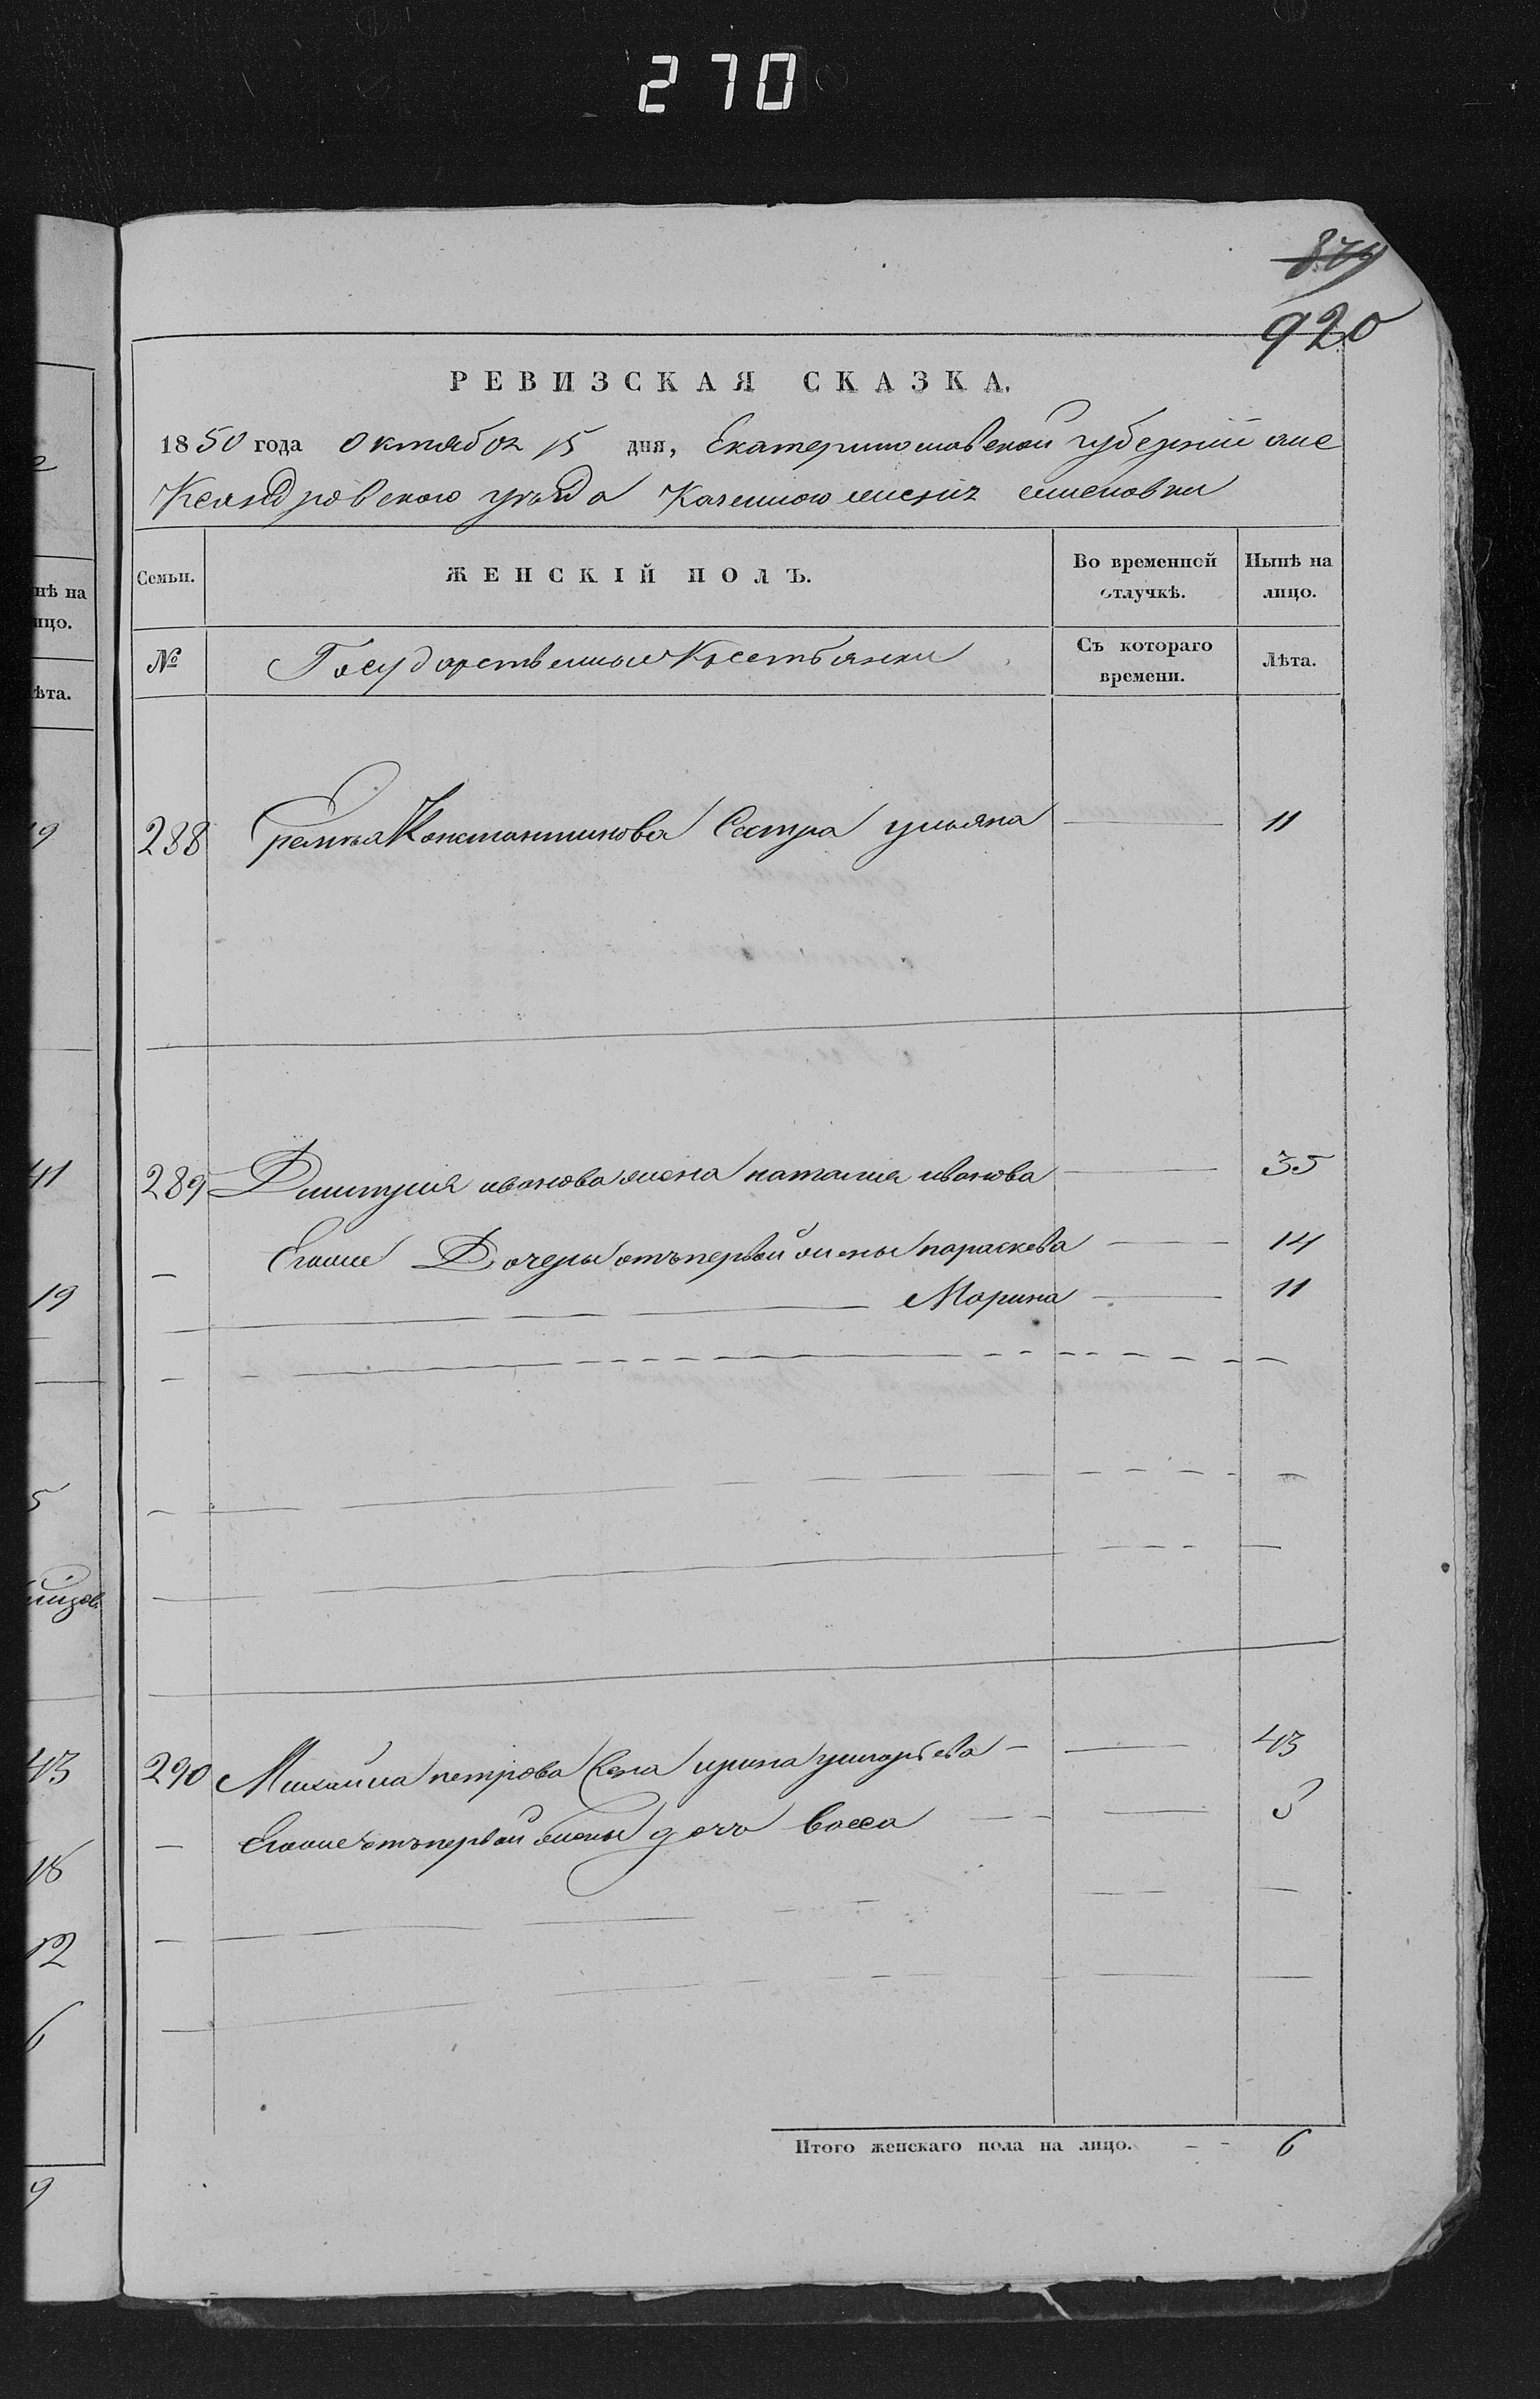 270
879
920
РЕВИЗСКАЯ СКАЗКА.
1850 года октября 15 дня, Екатеринославской губернии але
Ксандровского уѣзда Казенного
Семьи. ЖЕНСКІЙ ПОЛЪ. Во временной отлучкѣ. Нынѣ на лицо.
№ Государственные Крестьянки Съ котораго времени. Лѣта.
288 Константинова Сестра ульяна 11
289 Дмитрия иванова жена наталия иванова 35
Егоже Дочеры отъ первой жены параскева 14
Марина 11
290 Михаила петрова жена ирина григорьева 43
Егоже отъ первой жены дочь васса 5
Итого женскаго пола на лицо. 6
нѣ на
ицо.
ѣта.
9
41
19
5
43
18
12
6
9